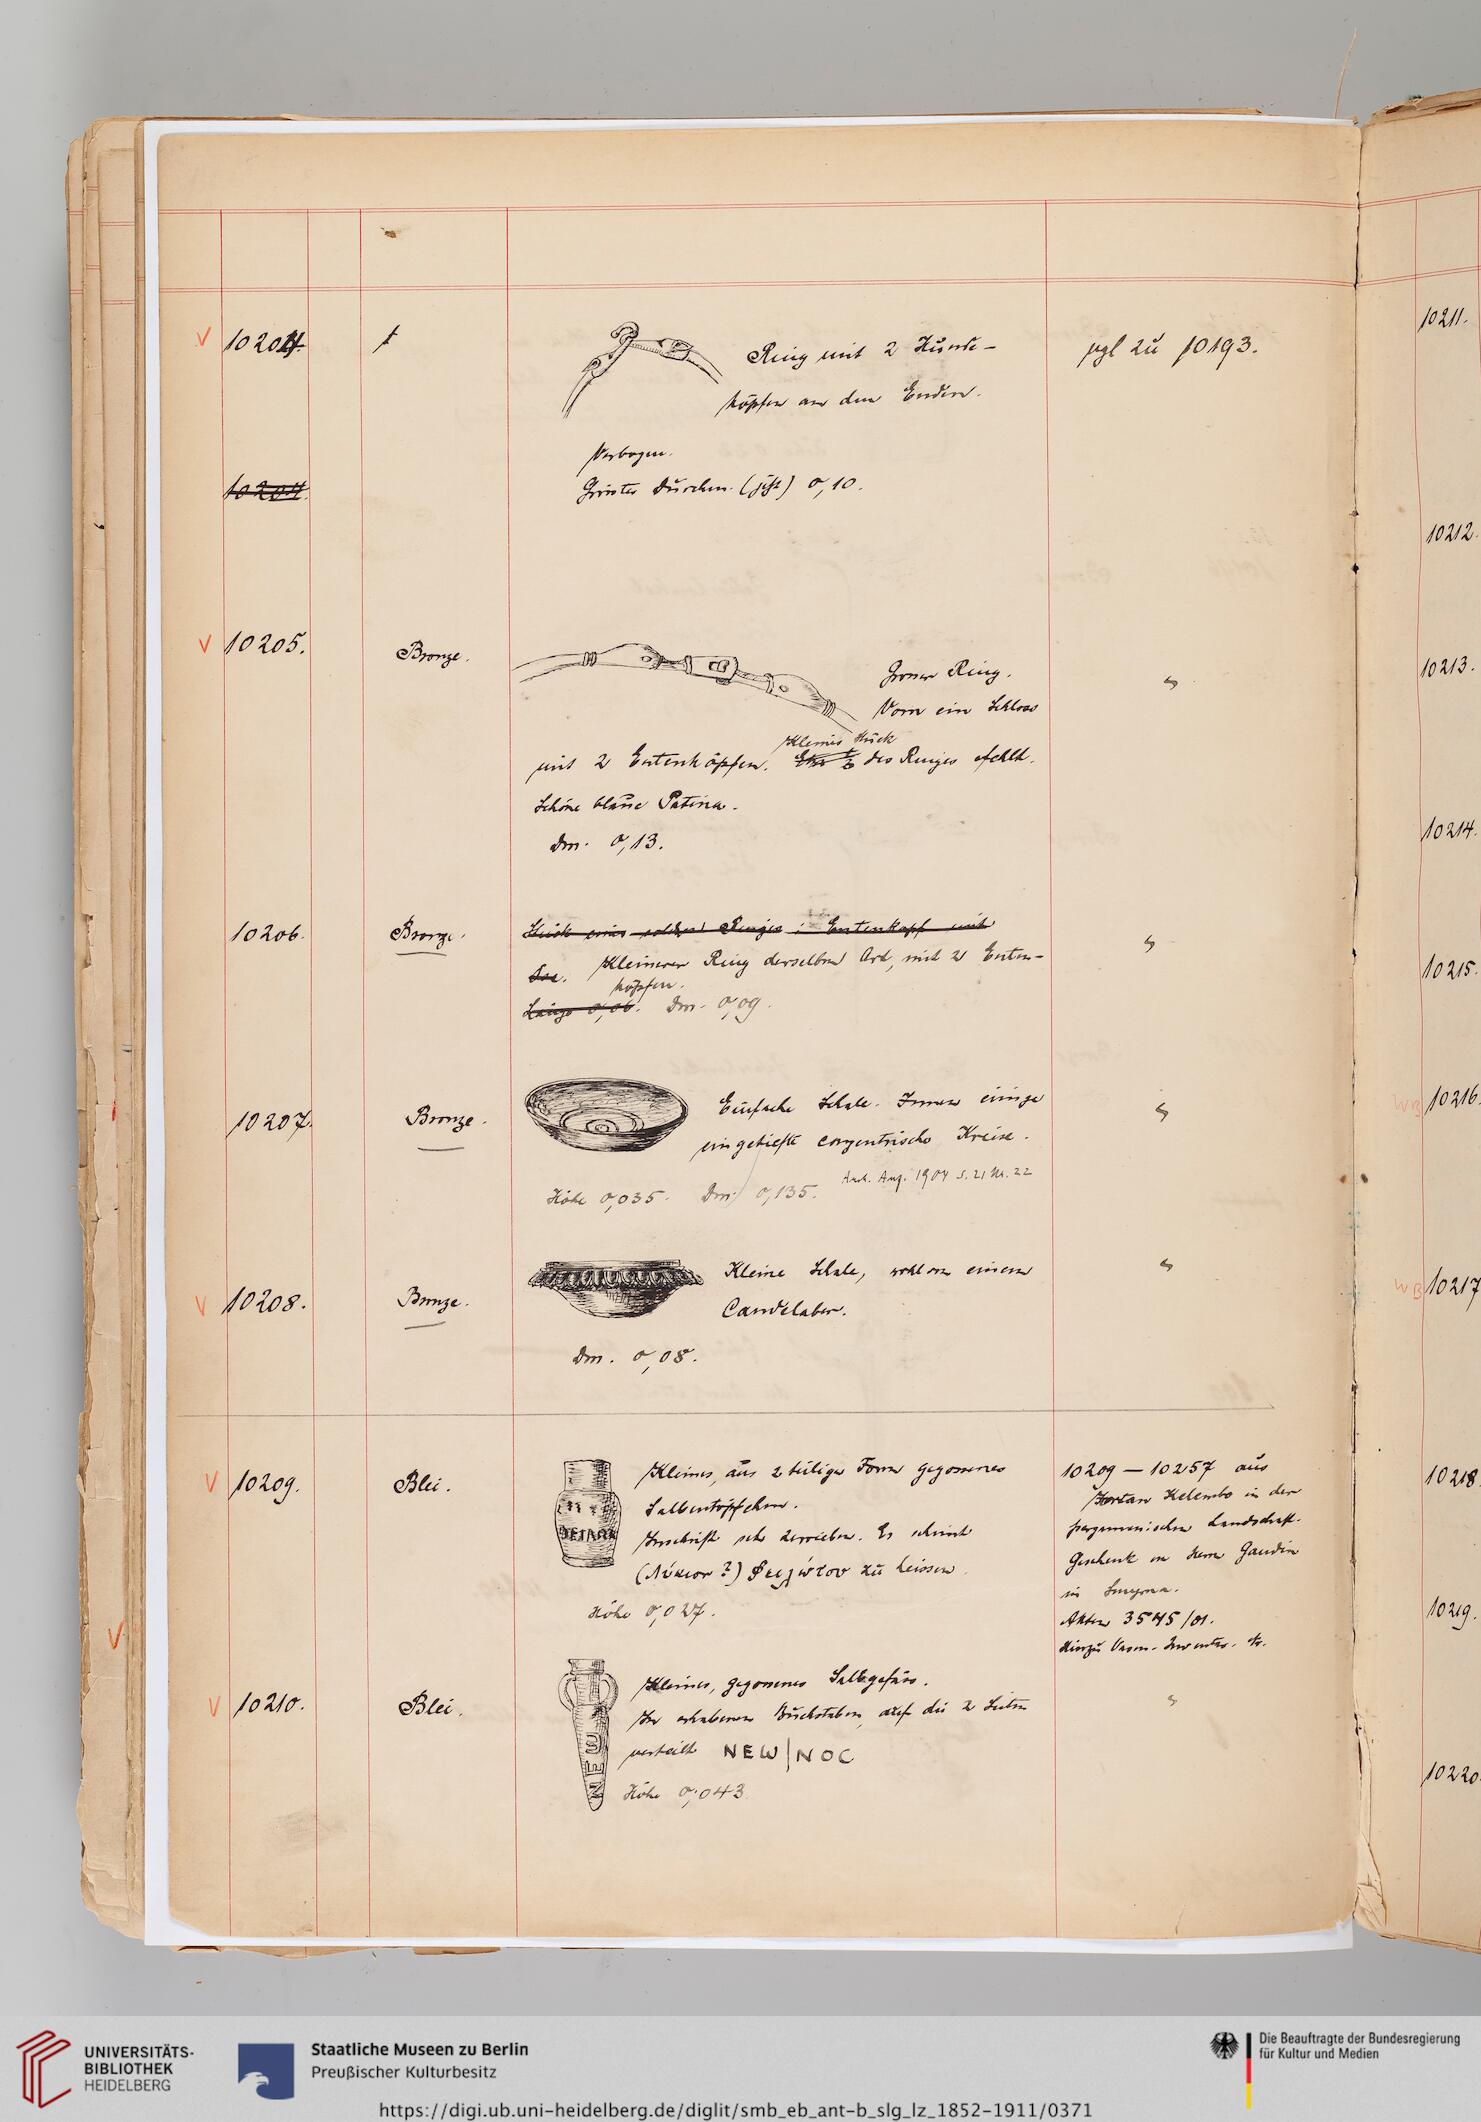 V 10204.
Ring mit 2 Hunde-
köpfen an den Enden.
vgl zu 10193.
Verbogen.
10204.
Grösster Durchm. (jetzt) 0,10.
V 10205.
Bronze.
Grosser Ring.
Vorn ein Schloss
Kleines Stück
mit 2 Entenköpfen. des Ringes fehlt.
Schöne blaue Patina.
Dm. 0,13.
10206.
Bronze.
Stück eines solchen Ringes: Entenkopf mit
Kleinerer Ring derselben Art, mit 2 Enten-
köpfen.
Länge 0,06. Dm. 0,09.
10207.
Bronze.
Einfache Schale. Innen einige
eingetiefte conzentrische Kreise.
Arch. Anz. 1904 S. 21 Nr. 22
Höhe 0,035. Dm. 0,135.
V 10208.
Bronze.
Kleine Schale, wohl von einem
Candelaber.
Dm. 0,08.
V 10209.
Blei.
Kleines, aus 2teiliger Form gegossenes
Salbentöpfchen.
Inschrift sehr zerrieben. Es scheint
(Λύκιον ?) zu heissen.
Höhe 0,027.
10209 – 10257 aus
Kelembo in der
pergamenischen Landschaft.
Geschenk von Herrn Gaudin
in Smyrna.
Akten 3545/01.
Hinzu Vasen-Inventar. etc.
V
V 10210.
Blei.
Kleines, gegossenes Salbgefäss.
In erhabenen Buchstaben, auf die 2 Seiten
verteilt NEW|NOC
NEW
Höhe 0,043
10211.
10212.
10213.
10214.
10215.
WB 10216.
WB 10217
10218
10219.
10220
UNIVERSITÄTS-
BIBLIOTHEK
HEIDELBERG
Staatliche Museen zu Berlin
Preußischer Kulturbesitz
Die Beauftragte der Bundesregierung
für Kultur und Medien
https://digi.ub.uni-heidelberg.de/diglit/smb_eb_ant-b_slg_lz_1852-1911/0371